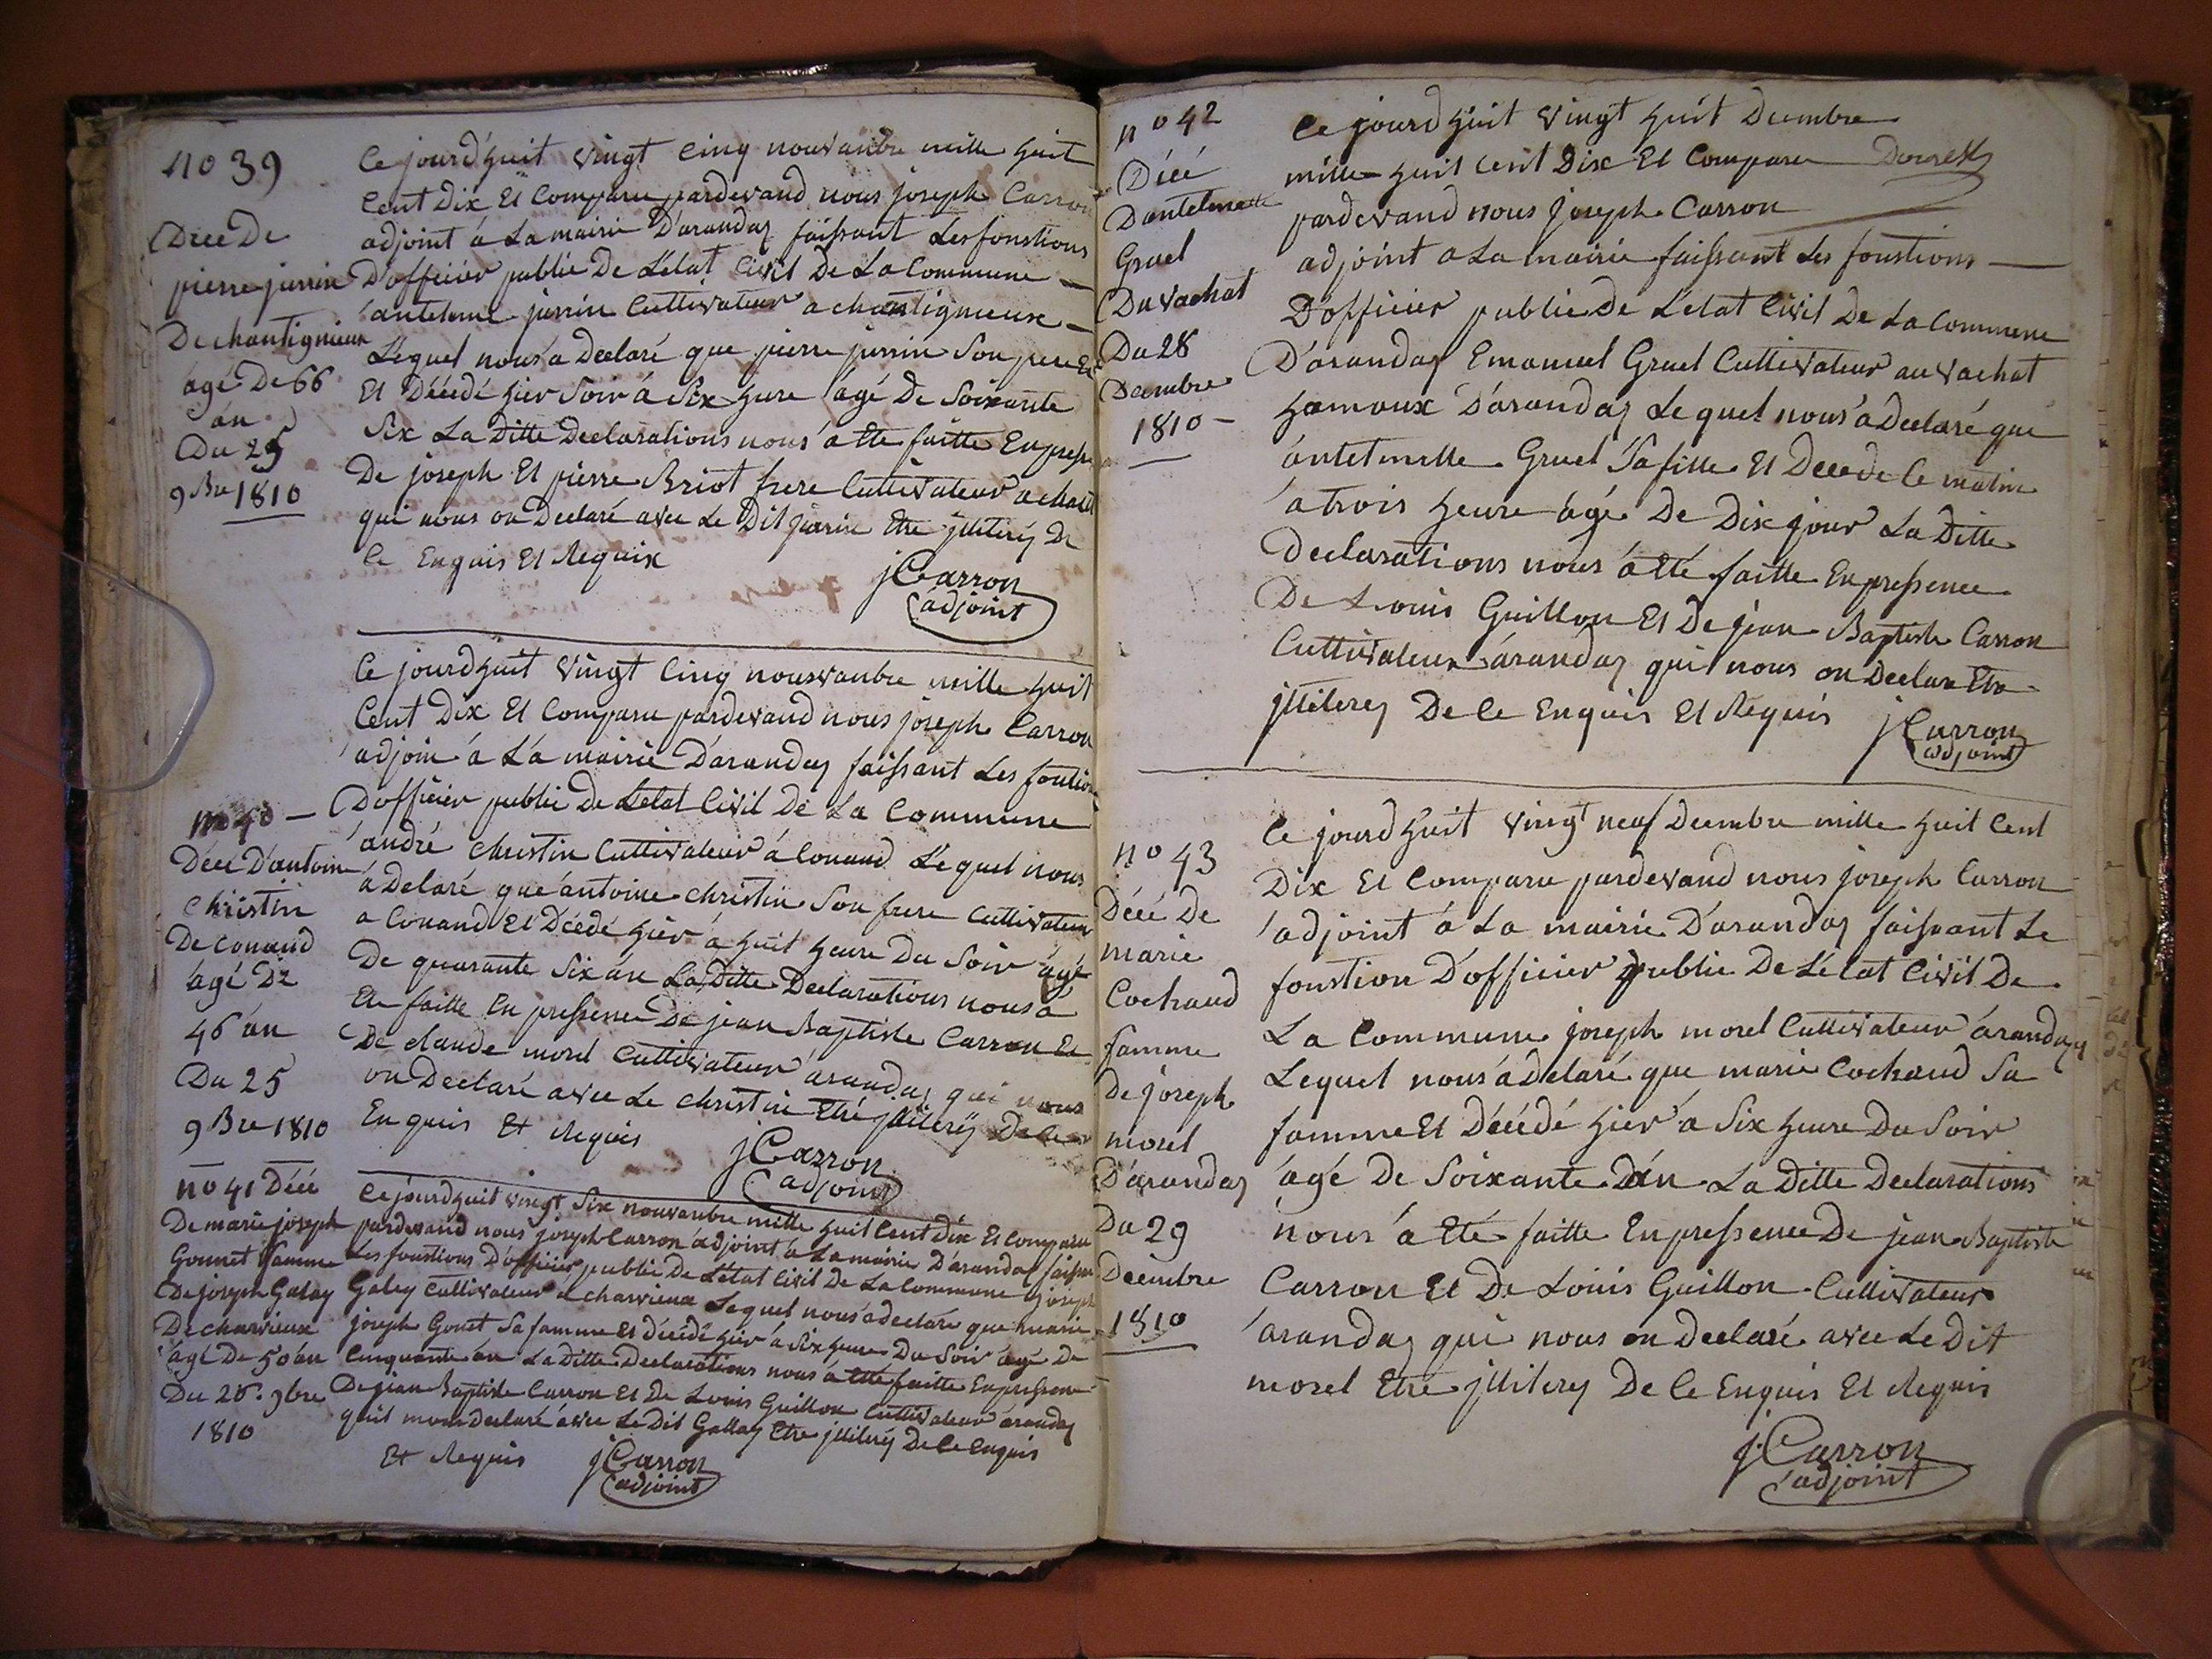 no 39
Décé De
pierre jurrin
De chantignieux
agé De 66
án
Du 25
9 Bre 1810
Ce jourd'huit vingt cinq nouvanbre mille huit
Cent Dix Et Comparu pardevand nous joseph Carron
adjoint á La mairie D'arandas faissant Les fonstions
D'officier public De L'état Civil De La Commune
antelme jurrin Cultivateur a chantignieux
Lequel nous a Declaré que pierre jurrin Son pere
Et Décédé hier Soir á Six hure agé De Soixante
Six La Ditte Declarations nous a Eté faitte En press
De joseph Et pierre Briot frere Cultivateur a chant
qui nous on Declaré avec Le Dit jurrin Etre jlliterÿ De
Ce Enquis Et Requix
jCarron
adjoint
no 40
Décé D'antoine
christin
De conand
agé De
46 án
Du 25
9 Bre 1810
Ce jourd'huit vingt Cinq nouvanbre mille huit
Cent Dix Et Comparu pardevand nous joseph Carron
adjoin á La mairie D'arandas faissant Les fontion
D'officier public De L'etat Civil De La Commune
andré christin Cultivateur á Conand Lequel nous
á Delaré que antoine christin Son frere Cultivateur
a Conand Et Décédé hier á huit heure Du Soir ágé
De quarante Six án La Ditte Declarations nous á
Ete faitte En pressence De jean Baptiste Carron Et
De claude morel Cultivateur arandas qui nous
on Declaré avec Le christin Etré jlliterÿ De Ce
Enquis Et Requis
jCarron
adjoint
no 41 Décé
De marie joseph
Gonnet famme
De joseph Galay
De charvieux
agé De 50 án
Du 26 . 9bre
1810
Ce jourd'huit vingt Six nouvanbre mille huit Cent Dix Et Comparu
pardevand nous joseph Carron adjoint á La mairie D'arandas faissan
Les fonstions D'officier public De L'état Civil De La Commune joseph
Galey Cultivateur á charvieux Lequel nous a declaré que marie
joseph Gonet Sa famme Et Décédé hier á Six heure Du Soir agé De
Cinquante án La Ditte Declarations nous á Eté faitte En pressence
De jean Baptiste Carron Et De Louis Guillon Cultivateur arandas
quit nous declaré avec Le Dit Gallay Etre jlliterÿ De Ce Enquis
Et Requis
jCarron
adjoint
no 42
Décé
Dantelmette
Gruel
Du vachat
Du 28
Decembre
1810
Ce jourd'huit vingt huit Decembre
mille huit Cent Dix Et Comparu
pardevand nous joseph Carron
adjoint a La mairie faissant Les fonstions
D'officier public De L'état Civil De La Commune
D'arandas Emanuel Gruel Cultivateur au vachat
hamaux D'arandas Lequel nous á Declaré que
ántelmette Gruel Sa fille Et Decede Ce matin
á trois heure ágé De Dix jour La Ditte
Declarations nous á Eté faitte En pressence
De Louis Guillon Et De jean Baptiste Carron
Cultivateur arandas qui nous on Declare Etre
jlliterey De Ce Enquis Et Requis
jCarron
adjoint
no 43
Décé De
marie
Cochaud
famme
De joseph
morel
D'arandas
Du 29
Decimbre
1810
Ce jourd'huit vingt neuf Decembre mille huit Cent
Dix Et Comparu pardevand nous joseph Carron
adjoint á La mairie D'arandas faissant Le
fonstion D'officier public De L'état Civil De
La Commune joseph morel Cultivateur arandas
Lequel nous á delaré que marie Cochaud Sa
famme Et Décédé hier á Six heure Du Soir
agé De Soixante D'án La Ditte Declarations
nous á Eté faitte En pressence De jean Baptiste
Carron Et De Louis Guillon Cultivateur
arandas qui nous on Declaré avec Le Dit
morel Etré jlliterey De Ce Enquis Et Requis
j.Carron
adjoint